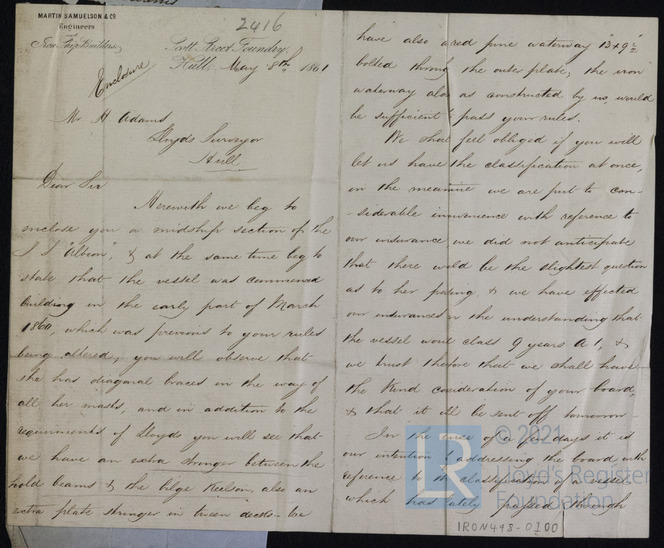 MARTIN SAMUELSON & Co
Engineers
Iron Ship Builders
2416
Scott Street Foundry,
Hull, May 8th 1861
Enclosure
Mr H Adams
Lloyds Surveyor
Hull
Dear Sir
Herewith we beg to
enclose you a midship section of the
S S "Albion", & at the same time beg to
state that the vessel was commenced
building in the early part of March
1860, which was previous to your rules
being altered, you will observe that
she has diagonal braces in the way of
all her masts, and in addition to the
requirements of Lloyds you will see that
we have an extra stringer between the
hold beams & the bilge keelson, also an
extra plate stringer in tween decks - we
have also a red pine waterway 13 x 9 in
bolted through the outer plate, the iron
waterway also as constructed by us, would
be sufficient to pass your rules.
We shall feel obliged if you will
let us have the classification at once,
in the meantime we are put to con-
-siderable inconvenience with reference to
our insurance we did not anticipate
that there would be the slightest question
as to her passing & we have effected
our insurances on the understanding that
the vessel would class 9 years A 1, &
we trust therefore that we shall have
the kind consideration of your board,
& that it will be sent off tomorrow -
In the course of a few days it is
our intention of addressing the board with
reference to the classification of a vessel
which has lately passed through
© 2021
Lloyd's Register
Foundation
IRON498-0100